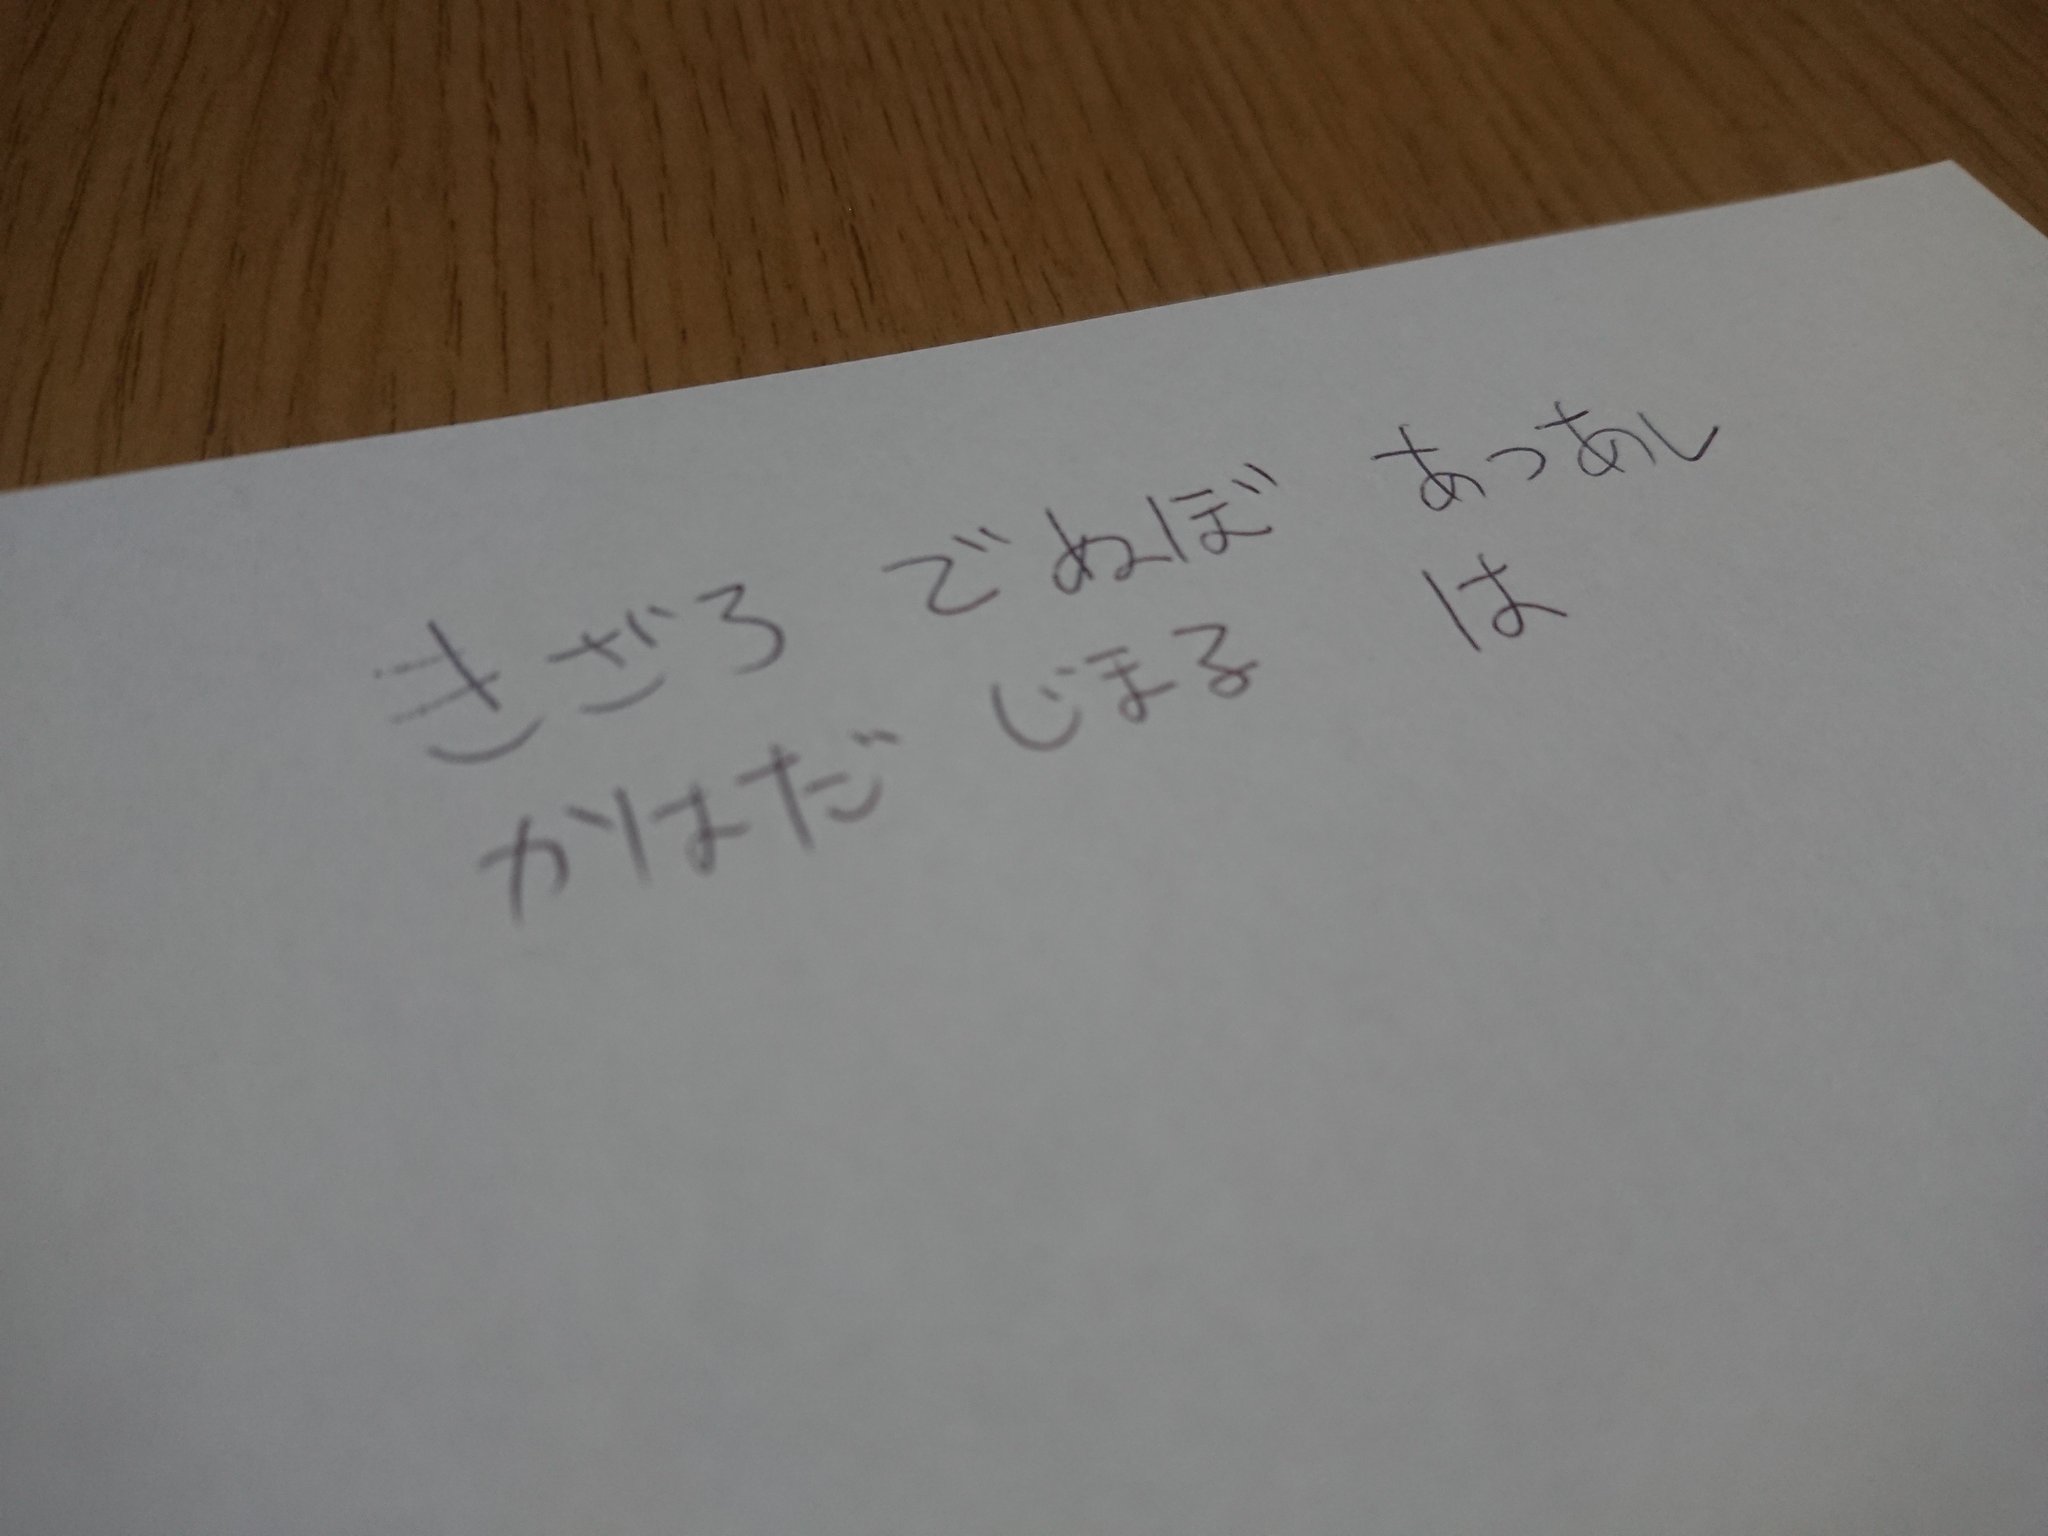 きざろ でぬぼ あつあし
かはだ じまる は